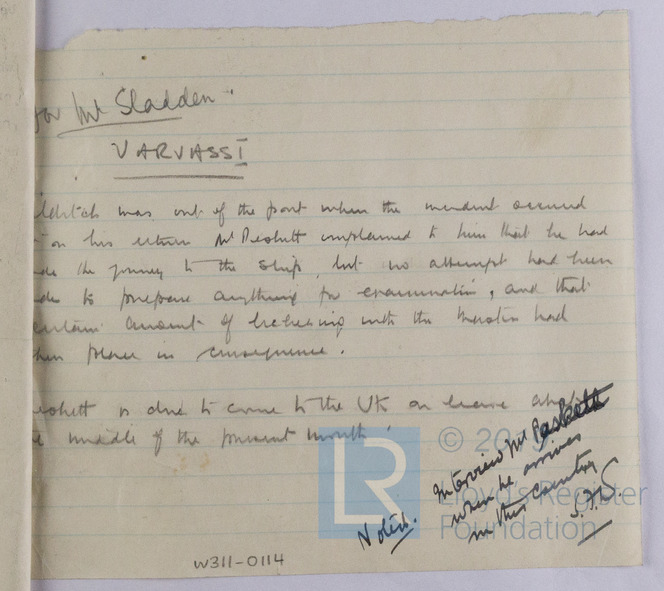 for Mr Sladden.
VARVASSI
was out of the port when the incident occurred
on his return Mr Peskett complained to him that he had
the journey to the ship, but no attempt had been
to prepare anything for examination, and that
certain amount of bickering with the Master had
place in consequence.
Peskett is due to come to the UK on leave about
middle of the present month.
Interview Mr Peskett
when he arrives
in this country
S.F.S.
Noted.
LR
© 20
Lloyd's Register
Foundation
W311-0114